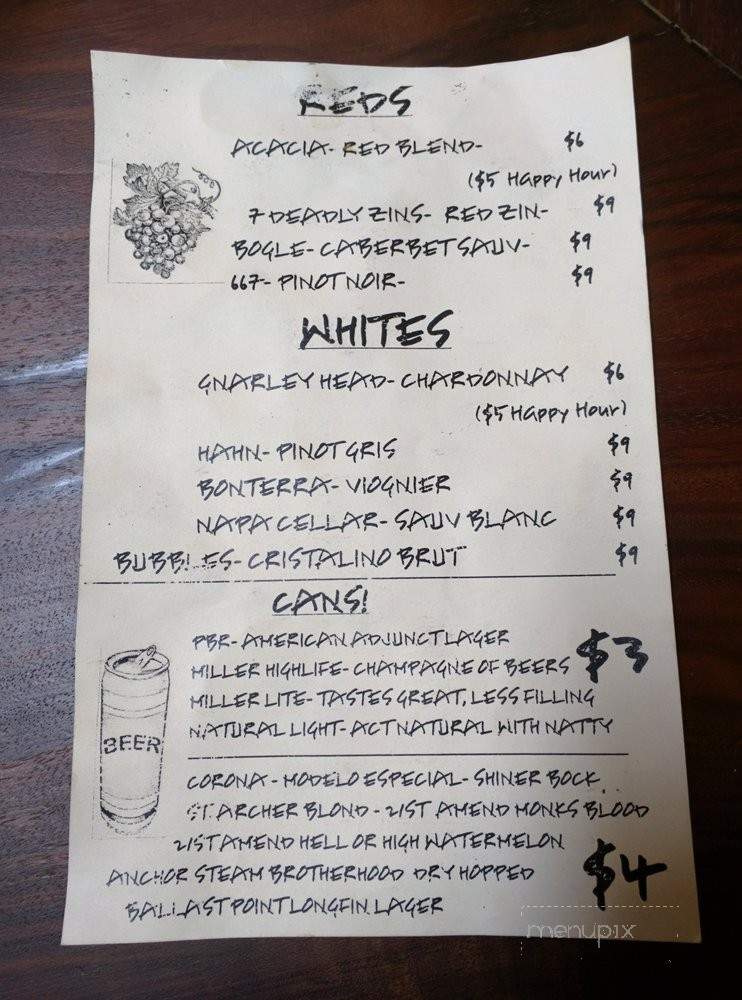 REDS
ACACIA- RED BLEND- $6
($5 Happy Hour)
7 DEADLY ZINS- RED ZIN- $9
BOGLE- CABERBET SAUV- $9
667- PINOT NOIR- $9
WHITES
GNARLEY HEAD- CHARDONNAY $6
($5 Happy Hour)
HAHN- PINOT GRIS $9
BONTERRA- VIOGNIER $9
NAPA CELLAR- SAUV BLANC $9
BUBBLES- CRISTALINO BRUT $9
CANS!
PBR- AMERICAN ADJUNCT LAGER
MILLER HIGHLIFE- CHAMPAGNE OF BEERS $3
MILLER LITE- TASTES GREAT, LESS FILLING
NATURAL LIGHT- ACT NATURAL WITH NATTY
BEER
CORONA - MODELO ESPECIAL- SHINER BOCK
ST ARCHER BLOND - 21ST AMEND MONKS BLOOD
21ST AMEND HELL OR HIGH WATERMELON
ANCHOR STEAM BROTHERHOOD DRY HOPPED $4
BALLAST POINT LONGFIN LAGER
menupix